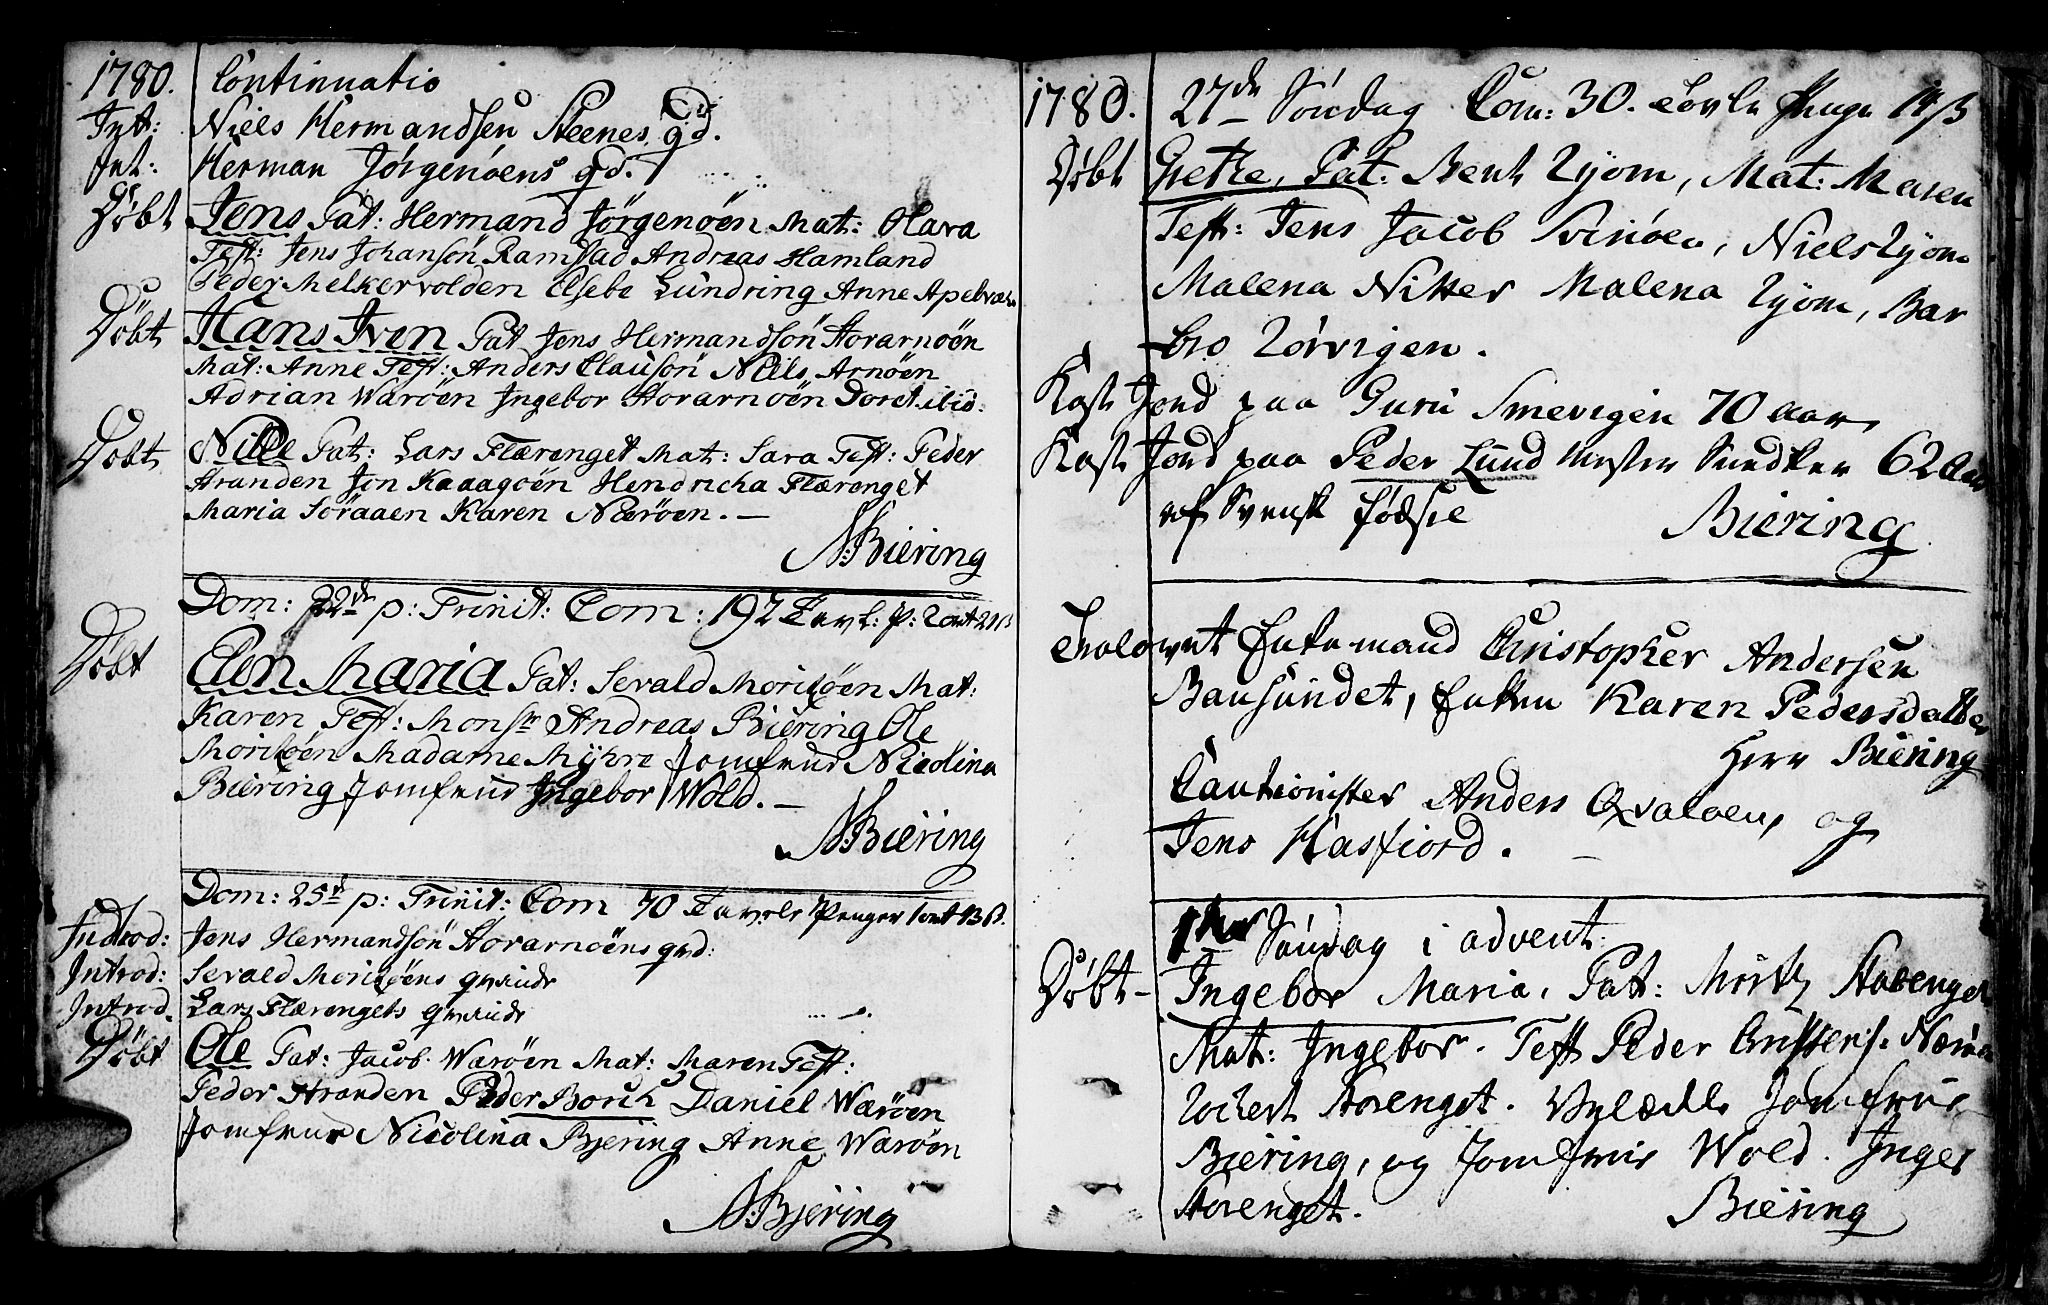 1780. Continuatio
Int: Niels Hermandsen Steenes qd.
Int: Herman Jörgenöens qd.
Döbt Jens Pat: Hermand Jörgenöen Mat: Olava
Test: Jens Johansön Ramstad Andreas Hamland
Peder Melkervolden Elsebe Lundring Anne
Döbt Hans Iven Pat Jens Hermandsön Storarnöen
Mat: Anne Test: Anders Clausön Niels Arnöen
Adrian Waröen Ingebor Storarnöen
Döbt Nille Pat: Lars Flærenget Mat: Sara Test: Peder
Stranden Jon Hendricha Flærenget
Maria Söraaen Karen Næröen. –
N: Biering
Dom: 22de p: Trinit: Com: 192
Döbt Elen Maria Pat: Sevald Morilöen Mat:
Karen Test: Monsr Andreas Biering Ole
Morilöen Madame Myhre Jomfrue Nicolina
Biering Jomfrue Ingebor Wold. –
N: Biering
Dom: 25de p: Trinit: Com 70 Tavele Penger 1 ort 13 ß.
Introd: Jens Hermandsön Storarnöens qvd:
Introd: Sevald Morilöens qvinde
Introd. Lars Flærengets qvinde
Döbt Ole Pat: Jacob Waröen Mat: Maren Test:
Peder Stranden Peder Borch Daniel Wæröen
Jomfrue Nicolina Bjering Anne Waröen
N: Bjering
1780. 27de Söndag Com: 30. Tavle Penge
Döbt Grethe, Pat: Bent Uyom, Mat: Maren
Test: Jens Jacob Svinöen, Niels Uyom
Malena Nitter Malena Uyom, Bar
bro Zörvigen.
Kast Jord paa Guru Smevigen 70 aar
Kast Jord paa Peder Lund Snedker 62 Aar
af Svensk födsel
Biering
Trolovet Enkemand Christopher Andersen
Bausundet, Enken Karen Pedersdatter
Herr Biering
Cautionister Anders Qvaloen, og
Jens Hasfiord. –
1ste Söndag i advent.
Döbt – Ingebor Maria, Pat: Mortz Storenget
Mat: Ingebor. Test Peder
Storenget. Jomfrue
Biering, og Jomfrue Wold. Inger
Storenget.
Biering